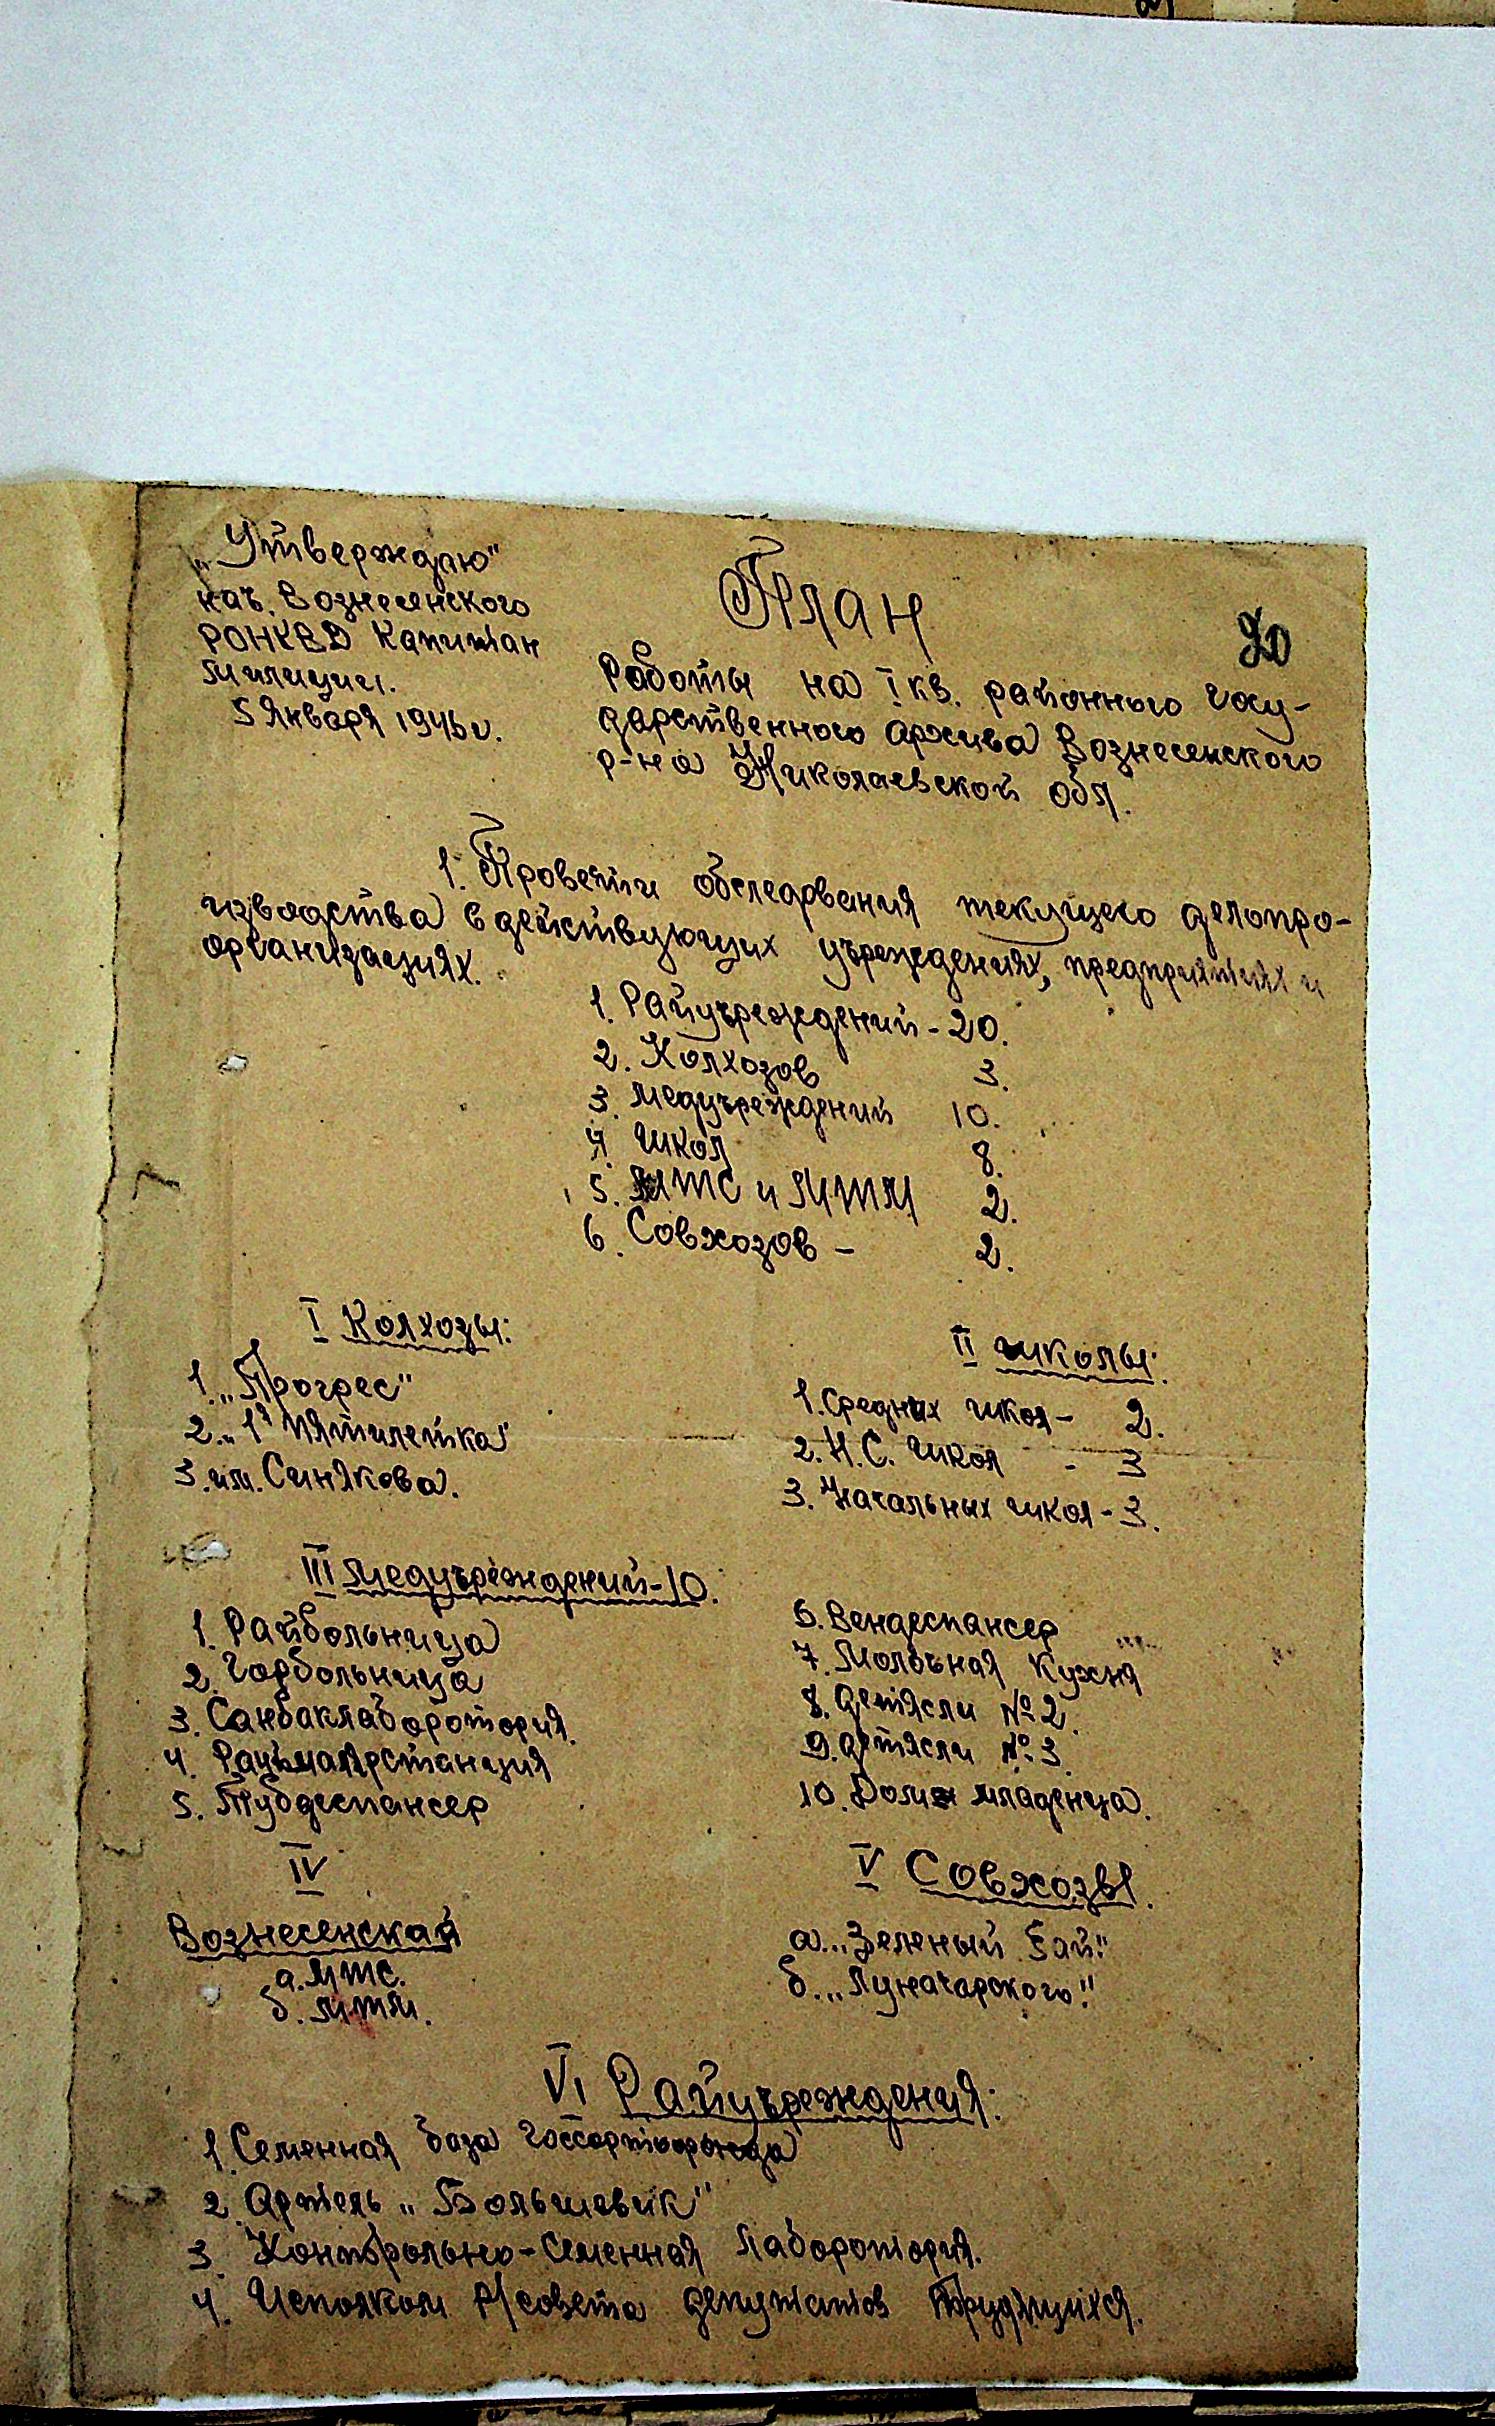 „Утверждаю"
нач. Вознесенского
РОНКВД Капитан
милиции.
5 Января 1945 г.
План
20
Работы на I кв. районного Госу-
дарственного архива Вознесенского
р-на Николаевской обл.
1. Провести обследования текущего делопро-
изводства в действующих учреждениях, предприятиях и
организациях.
1. Райучреждений - 20.
2. Колхозов 3.
3. Медучреждений 10.
4. Школ 8.
5. МТС и МТМ 2.
6. Совхозов - 2.
I Колхозы:
1. „Прогрес"
2. „1я Пятилетка"
3. им. Синякова.
II Школы:
1. Средних школ - 2.
2. Н.С. школ - 3
3. Начальных школ - 3.
III Медучреждений - 10.
1. Райбольница
2. Горбольница
3. Санбаклаборотория.
4. Райсмалярстанция
5. Тубдеспансер
6. Вендеспансер
7. Молочная Кухня
8. Детясли № 2.
9. Детясли № 3.
10. Дом младенца.
IV
Вознесенская
а. МТС.
б. МТМ.
V Совхозы.
а. „Зеленый Гай."
б. „Луначарского."
VI Райучреждения:
1. Семенная база
2. Артель „Большевик"
3. Контрольно-Семенная лаборотория.
4. Исполком Р/совета депутатов Трудящихся.